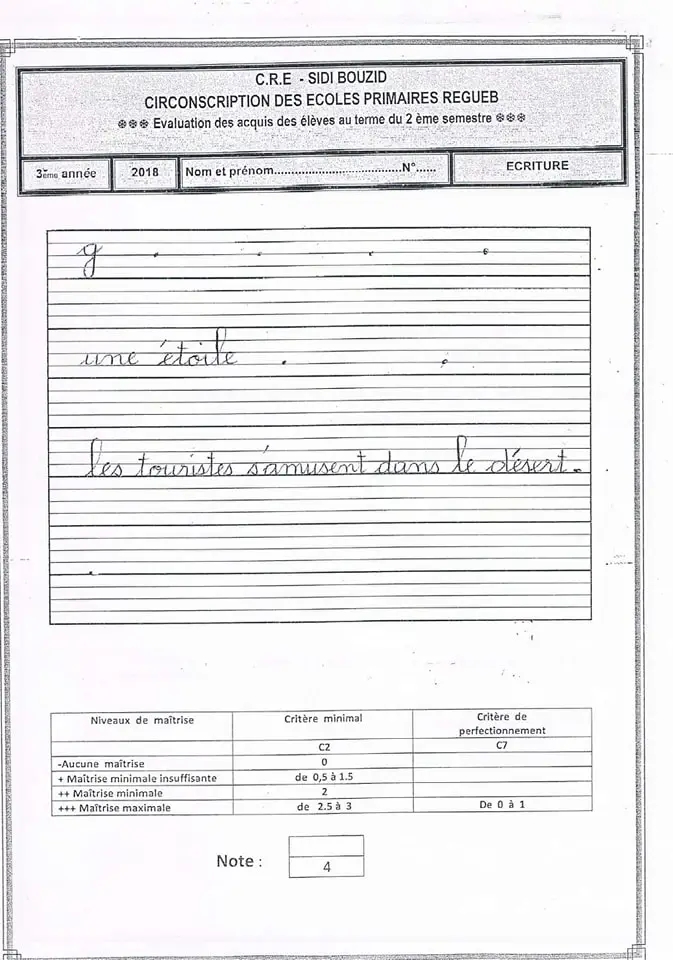 C.R.E - SIDI BOUZID
CIRCONSCRIPTION DES ECOLES PRIMAIRES REGUEB
❄❄❄ Evaluation des acquis des élèves au terme du 2 ème semestre ❄❄❄
3ème année 2018 Nom et prénom......................................N°...... ECRITURE
g . . . .
une étoile . .
les touristes s'amusent dans le désert.
.
Niveaux de maîtrise Critère minimal Critère de perfectionnement
C2 C7
-Aucune maîtrise 0
+ Maîtrise minimale insuffisante de 0,5 à 1.5
++ Maîtrise minimale 2
+++ Maîtrise maximale de 2.5 à 3 De 0 à 1
Note :
4